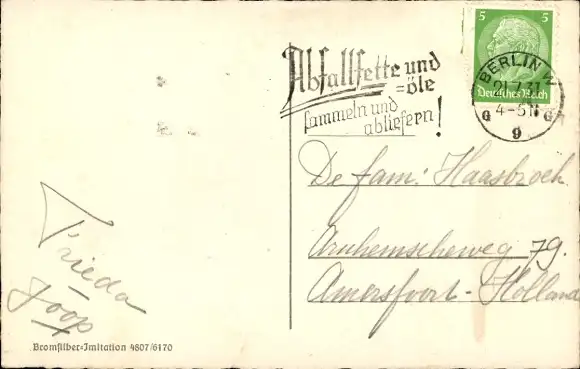 5 5
Deutsches Reich
BERLIN W
4-5N
G G
9
Abfallfette und
=öle
sammeln und
abliefern!
De fam: Haasbroek
Arnhemscheweg 79.
Amersfoort - Holland
Frieda
Joop
Bromsilber-Imitation 4807/6170